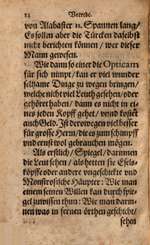 12 Vorrede.
von Alabaster 12. Spannen lang/
Es sollen aber die Türcken daselbst
nicht berichten können/ wer dieser
Mann gewesen.
Wie dann so einer die Opticam
für sich nimpt/ kan er viel wunder
seltzame Dinge zu wegen bringen/
welche nicht viel Leuth gesehen/ oder
gehöret haben/ dann es nicht in ei-
nes jeden Kopff gehet/ vnd kostet
auch Geld. Ist derowegen viel besser
für grosse Herrn/ die es zum schimpff
vnd ernst wol gebrauchen mögen.
Als erstlich/ Spiegel/ darinnen
die Leut sehen/ als hetten sie Esels-
köpffe oder andere vngeschickte vnd
Monstrosische Häupter: Wie man
einem seinen Willen kan durch spie-
gel zuwissen thun: Wie man darin-
nen was in fernen örthen geschicht/
sehen